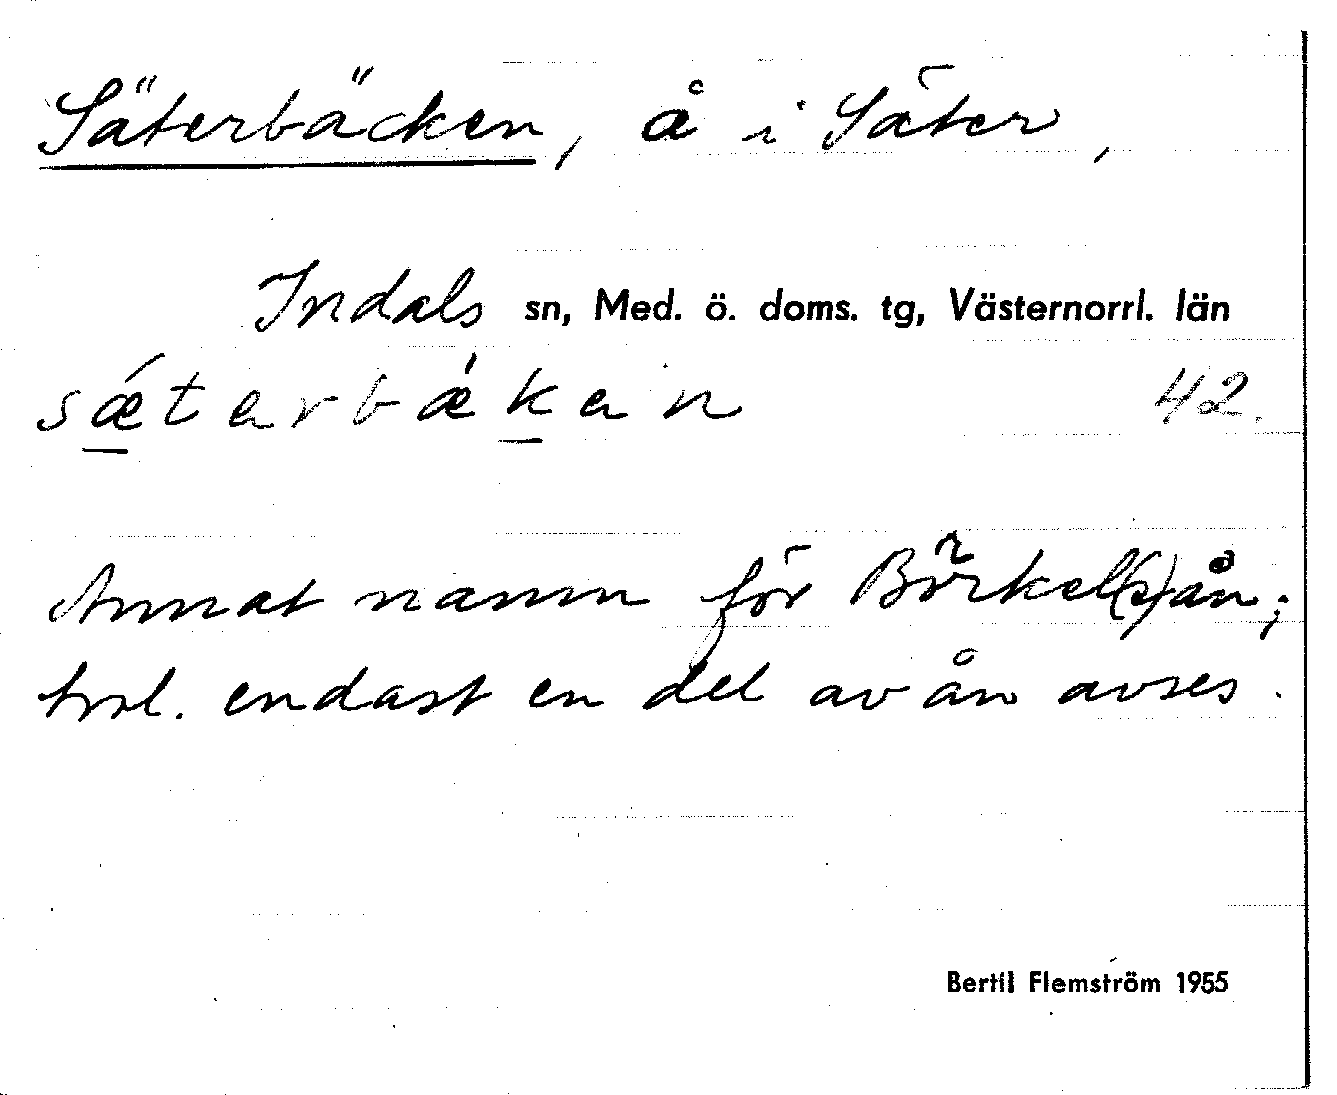 Säterbäcken, å i Säter,
Indals sn, Med. ö. doms. tg, Västernorrl. län
sǽterbǽken 42.
Annat namn för Börkel(s)ån;
trol. endast en del av ån avses.
Bertil Flemström 1955